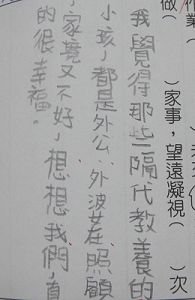 作業（
做（　）家事，望遠凝視（　）次
我覺得那些隔代教養的
小孩，都是外公、外婆在照顧
，家境又不好，想想我們，真
的很幸福。